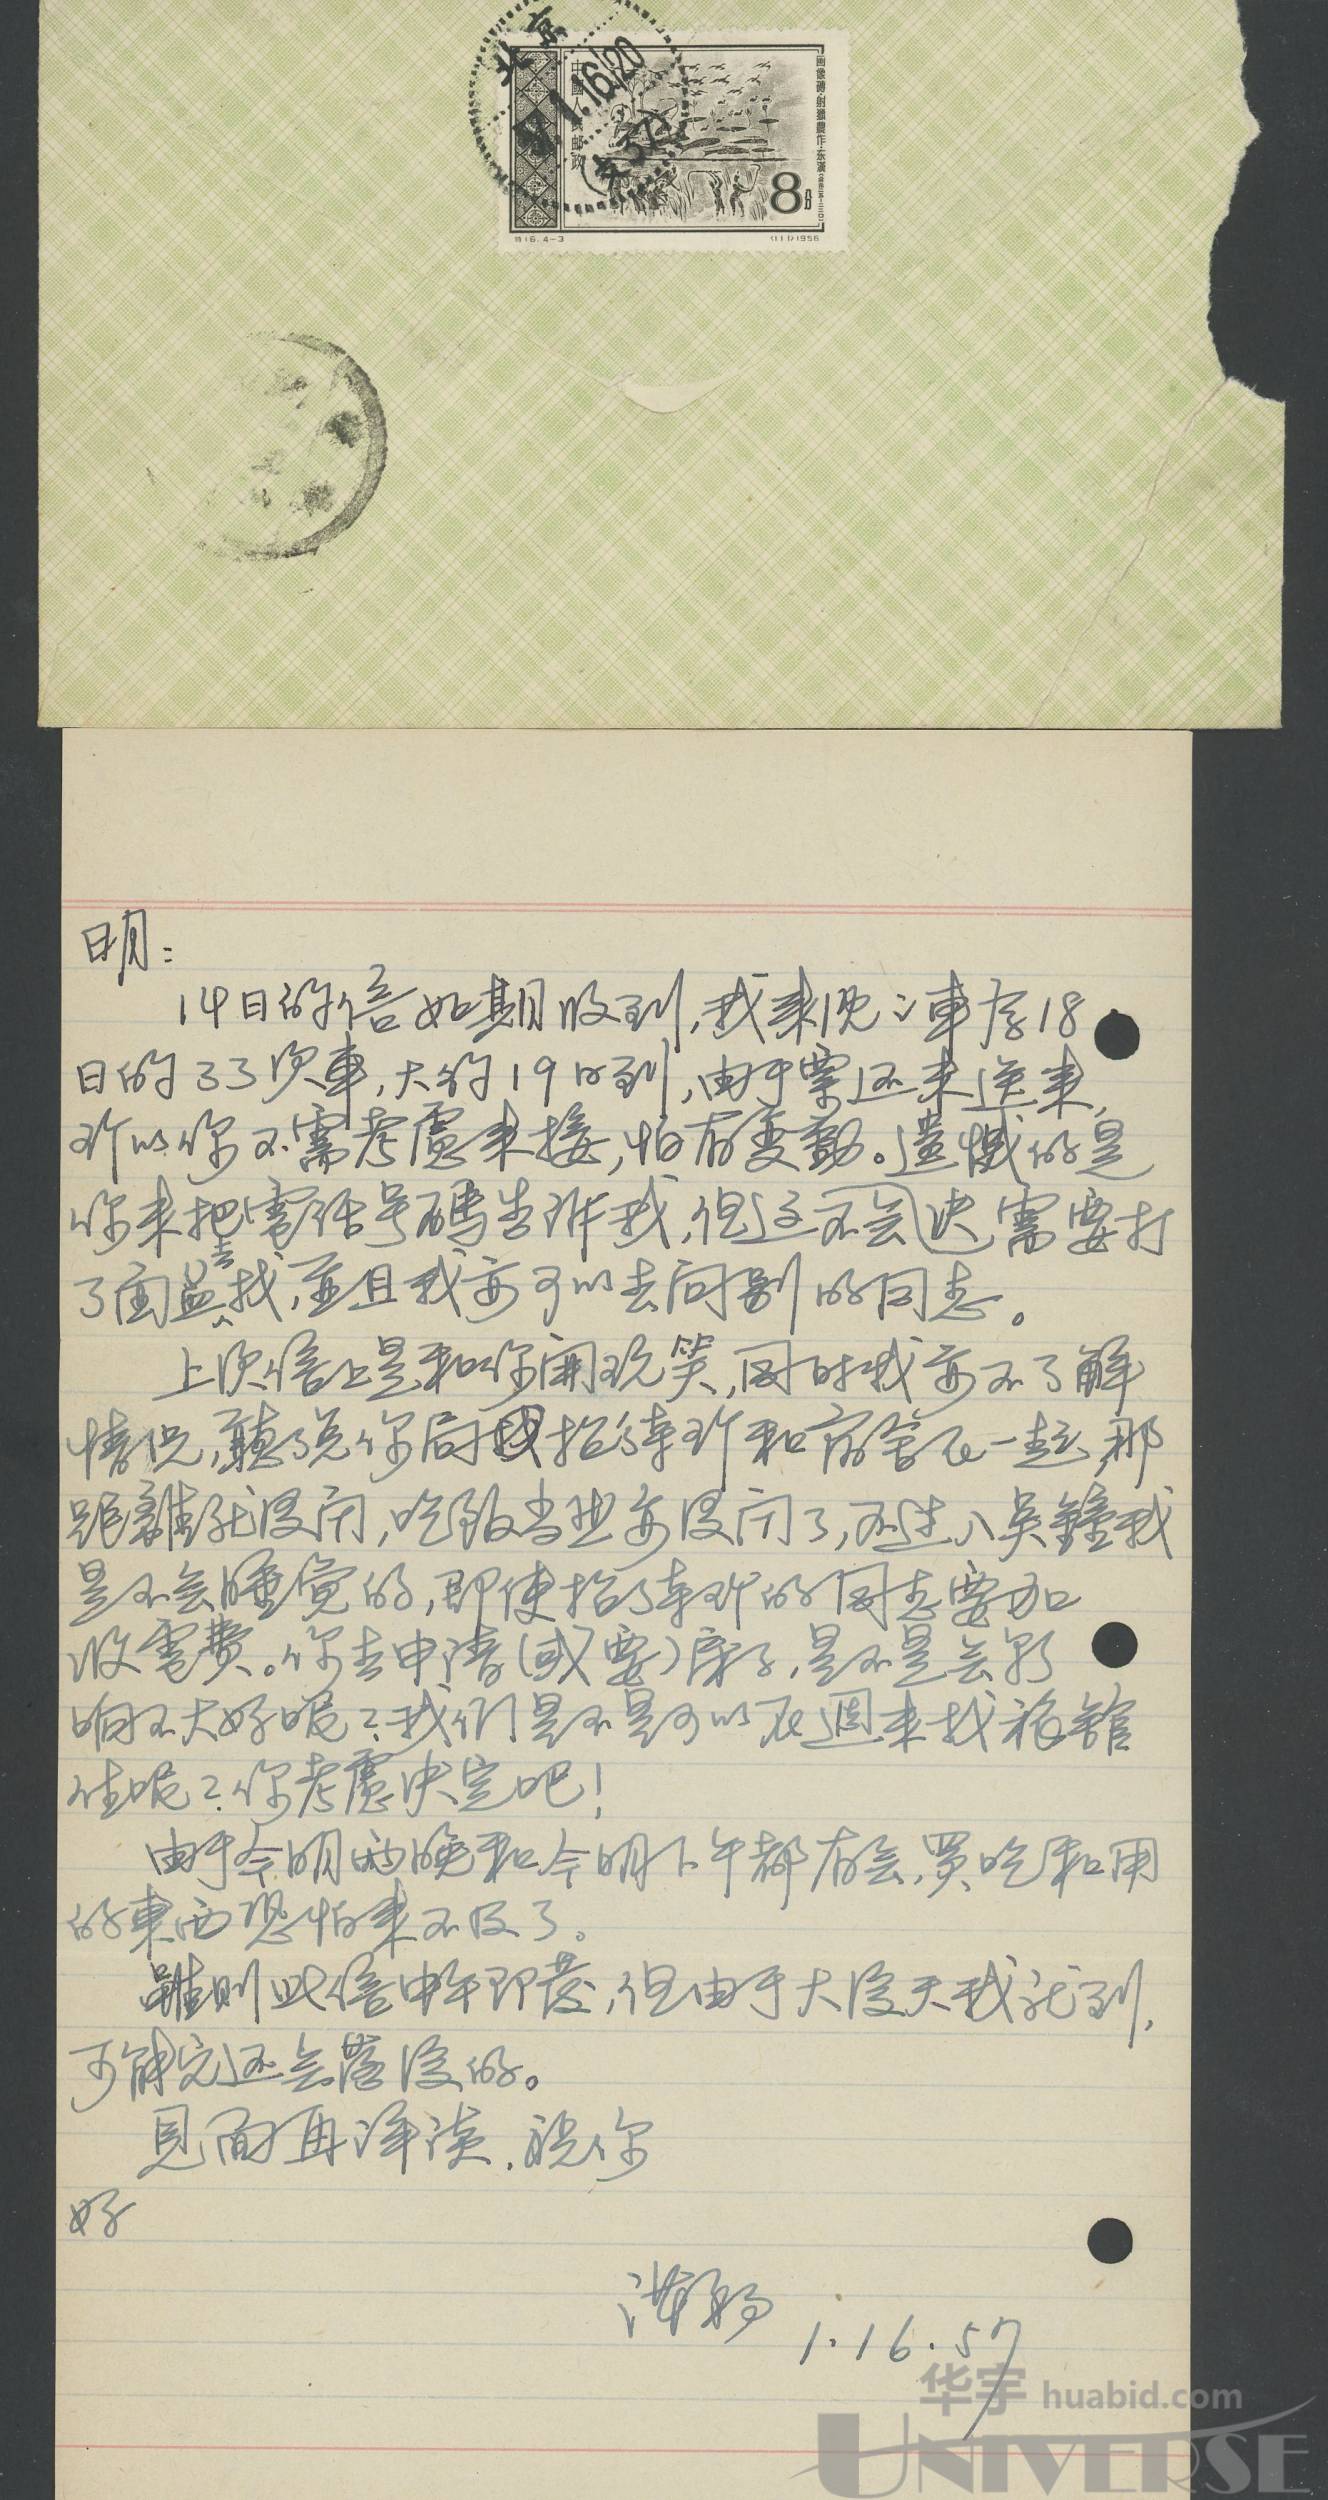 北京
中國人民邮政
画像磚·射獵農作·东漢
8分
特16.4-3
(111)1956
明：
14日的信如期收到，我来沈之車為18
日的33次車，大約19日到，由于票还未送来，
所以你不需考慮来接，怕有変動。遺憾的是
你未把電話号碼告訴我，但这不会决需要打
了面去找，並且我亦可以去问别的同志。
上次信上是和你開玩笑，同时我亦不了解
情况，聽說你局招待所和宿舍在一起，那
距離就沒問，吃飯当然亦没问了，不过八点鐘我
是不会睡觉的，即使招待所的同志要加
收電費。你去申请(或要)房子，是不是会影
响不大好呢？我們是不是可以在週末找旅館
住呢？你考慮决定吧！
由于今明两晚和今明下午都有会，買吃和用
的東西恐怕来不及了。
雖則此信中午即發，但由于大后天我就到，
可能它还会落後的。
見面再详谈．祝你
好
1.16.57
华宇 huabid.com
UNIVERSE